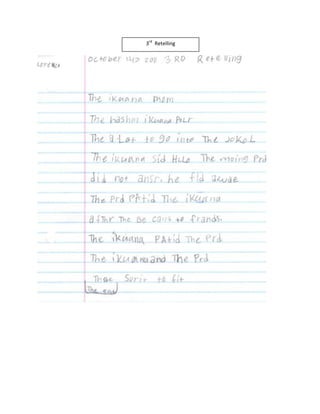 3rd Retelling
October 3 RD Retelling
The ikuana mom
The hashis ikuana
The a Lat to go into The JokeL
The ikuana Sid HeLo The moing Prd
did not ansr. he fld awae
The Prd PAtid The ikuana
after The Be cam to frands.
The ikuana PAtid The Prd.
The ikuana and The Prd
to fit
The end